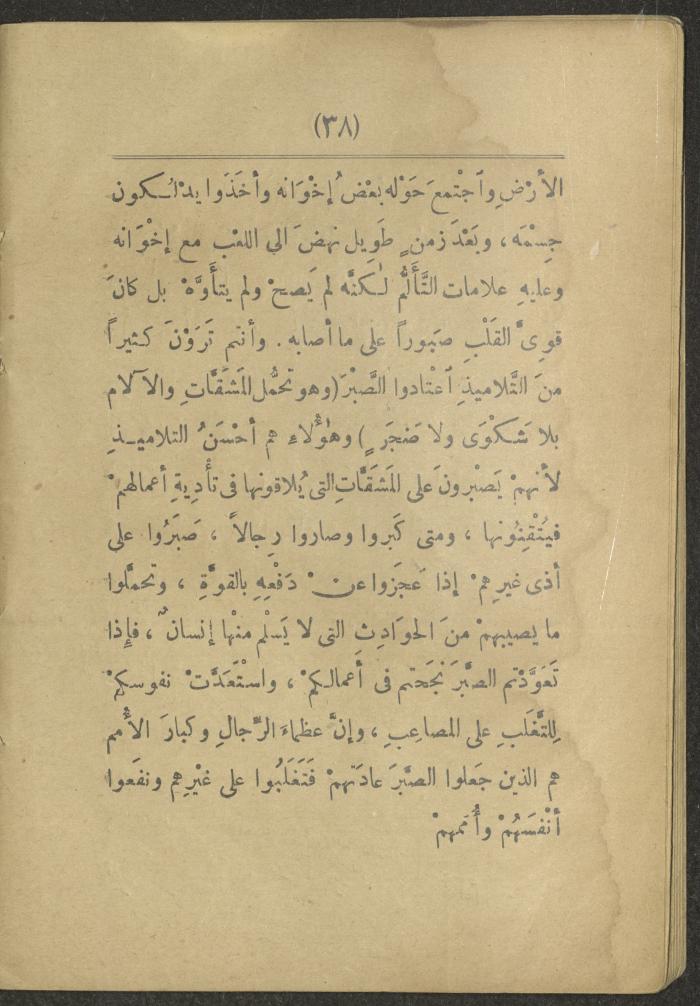 (٣٨)
الأرْضِ وٱجْتمعَ حَوْله بعْضُ إخْوَانه وأخَذَوا يدْلُـكون
جِسْمَه ، وبَعْدَ زمنٍ طَوِيل نهضَ الى اللعْب مع إخْوَانه
وعليهِ علامات التَّأَلُّم لـٰكنَّه لم يَصحْ ولم يتأَوَّهْ بل كانَ
قوِىَّ القَلْبِ صَبوراً على ما أصابه . وأنتم تَرَوْنَ كـثيراً
منَ التَّلاميذِ ٱعْتادوا الصَّبْرَ (وهو تحمُّل المَشقَّاتِ والآلام
بلا شَـكْوَى ولا ضَجَرٍ ) وهٰؤُلاءِ هم أحْسَنُ التلاميـذِ
لأنهمْ يَصْبرونَ على المَشقَّاتِ التى يُلاقونها فى تأْدِيةِ أعمالهمْ
فيُتْقِنُونها ، ومتى كَبروا وصاروا رِجالاً ، صَبَرُوا على
أذى غيرِهمْ إذا عَجَزوا عنْ دَفْعِهِ بالقوَّةِ ، وتحمَّلوا
ما يصيبهمْ منَ الحوَادِثِ التى لا يَسْلم منْها إنسانٌ ، فإِذا
تَعَوَّدْتم الصَّبْرَ نَجَحتم فى أعمالـكمْ ، واستْعَدَّتْ نفوسكمْ
لِلتَّغَلبِ على المصاعِبِ ، وإنَّ عظماءَ الرِّجالِ وكبارَ الأُمم
هم الذين جَعلوا الصَّبْرَ عادَتهمْ فَتَغَلبُوا على غيْرِهم ونفَعوا
أنْفسَهُمْ وأُمَمهمْ